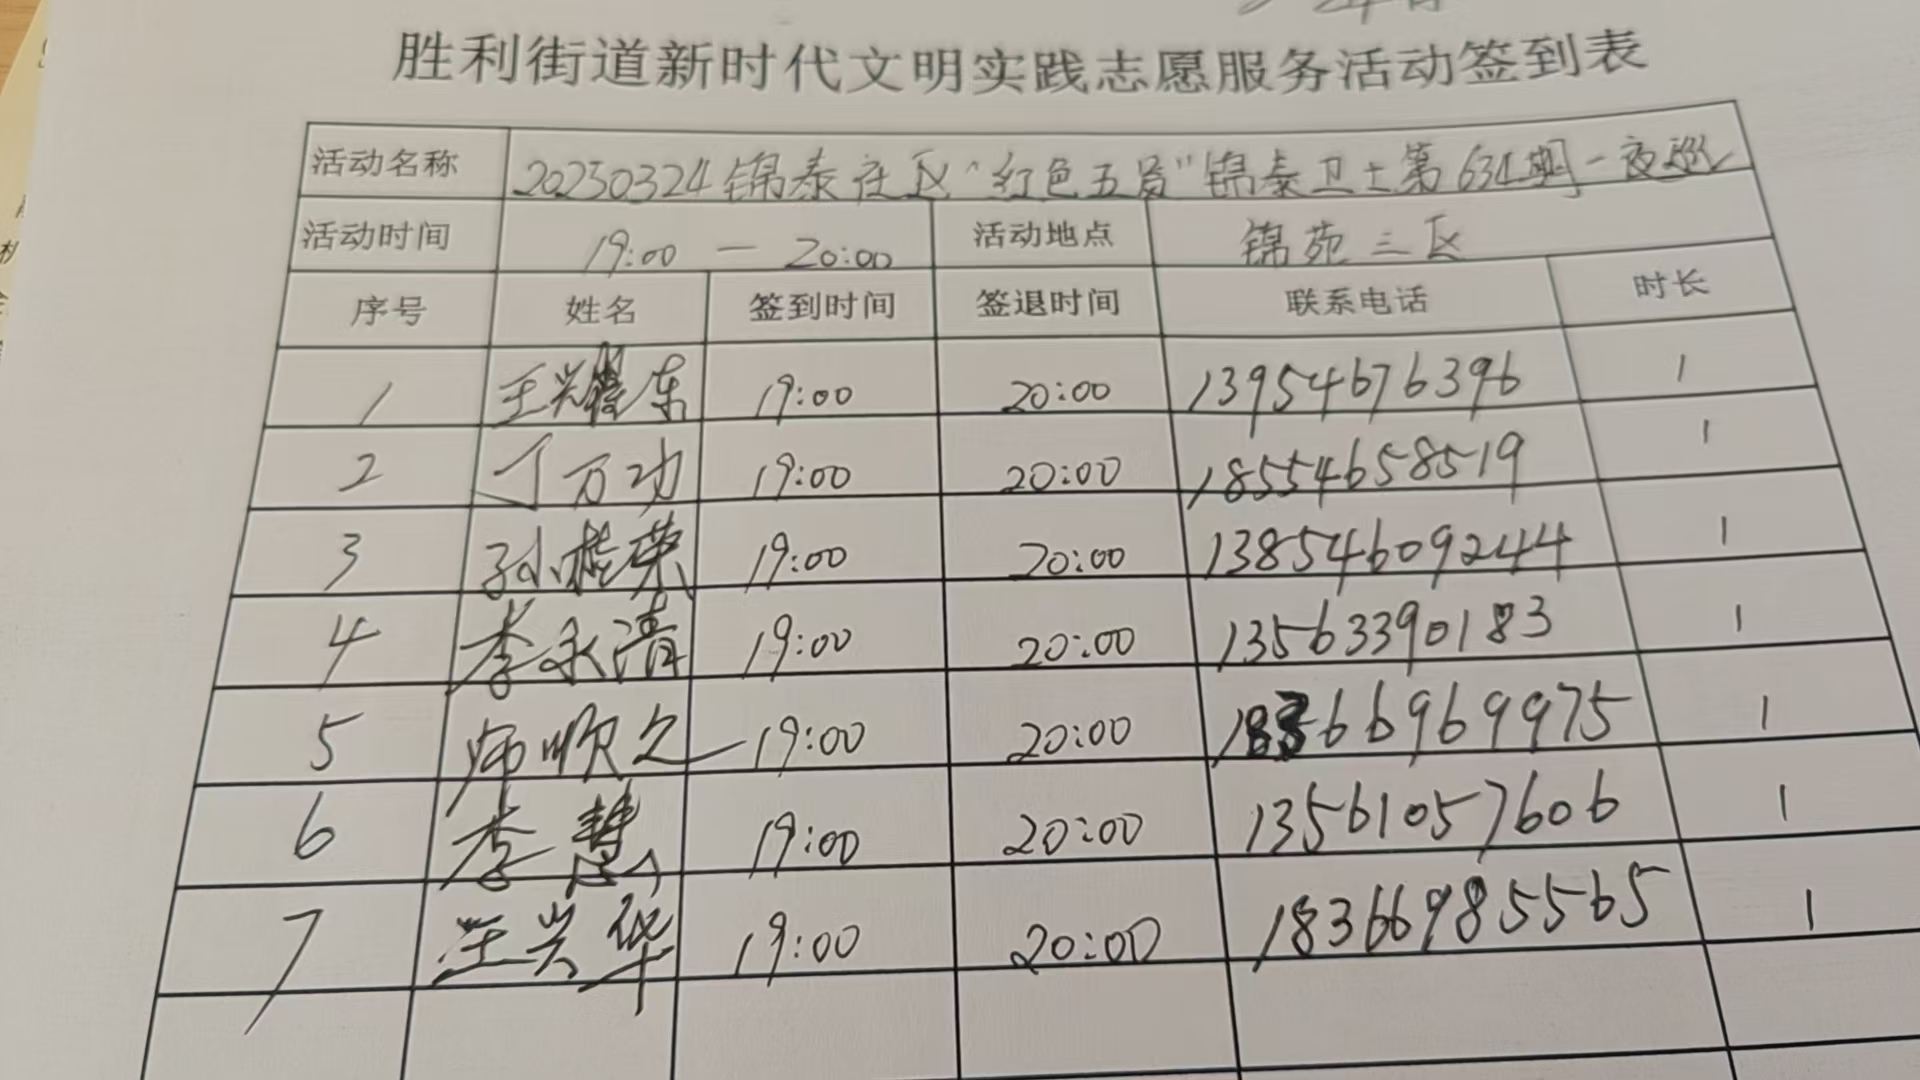 胜利街道新时代文明实践志愿服务活动签到表
活动名称 20250324锦泰社区“红色五员”锦泰卫士第634期一夜巡
活动时间 19:00 — 20:00 活动地点 锦苑三区
序号 姓名 签到时间 签退时间 联系电话 时长
1 王兴东 19:00 20:00 13954676396 1
2 丁万功 19:00 20:00 18554658519 1
3 孙桂荣 19:00 20:00 13854609244 1
4 李永清 19:00 20:00 13563390183 1
5 师顺之 19:00 20:00 18366969975 1
6 李慧 19:00 20:00 13561057606 1
7 王兴华 19:00 20:00 18366985565 1